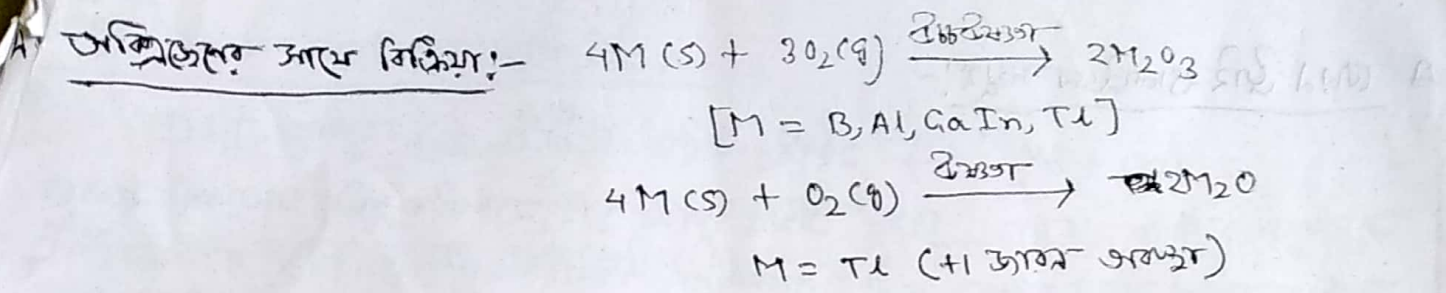 A. অক্সিজেনের সাথে বিক্রিয়া:- 4M(s) + 3O₂(g) → 2M₂O₃
[M = B, Al, Ga In, Tl]
4M(s) + O₂(g) → 2M₂O
M = Tl (+1 জারন অবস্থা)